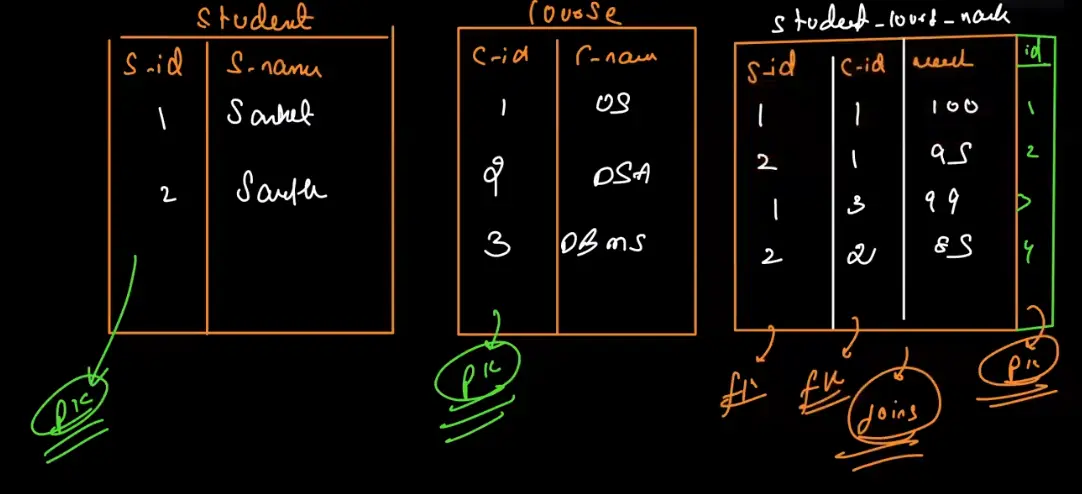 Student
S-id S-name
1 Sanket
2 Sarth
PK
Course
C-id C-name
1 OS
2 DSA
3 DBMS
PK
Student_Course_mark
S-id C-id mark id
1 1 100 1
2 1 95 2
1 3 99 3
2 2 85 4
fk fk PK
Joins